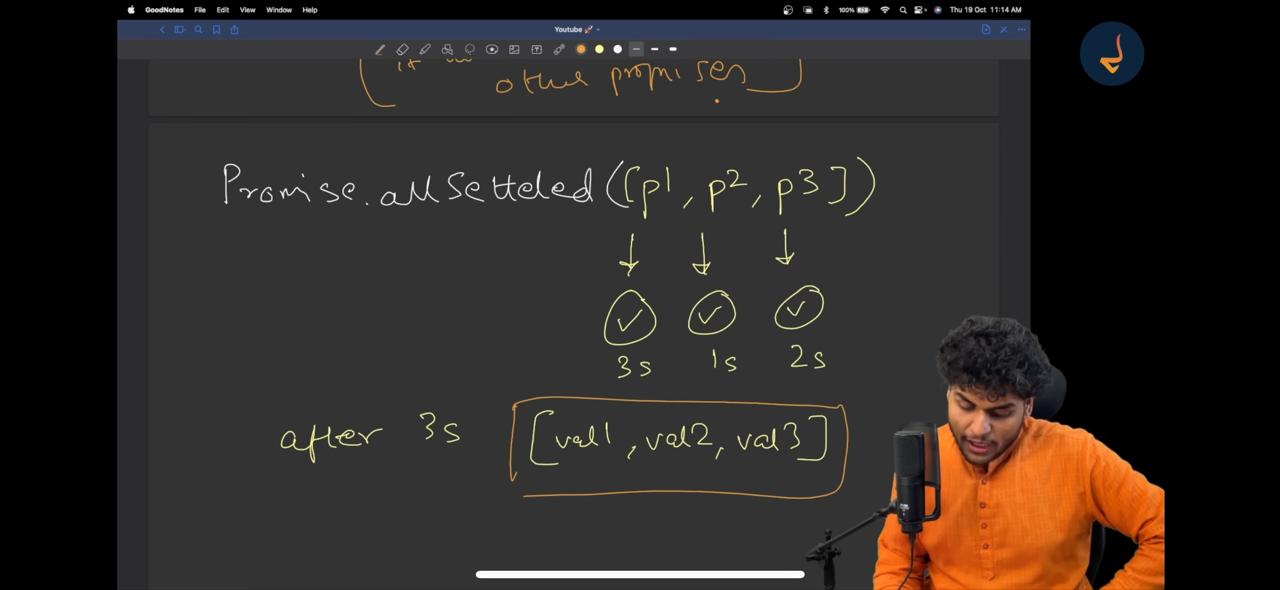 GoodNotes File Edit View Window Help 100% Thu 19 Oct 11:14 AM
Youtube 🚀
other promises
Promise.allSetteled([p1, p2, p3])
3s 1s 2s
after 3s [val1, val2, val3]